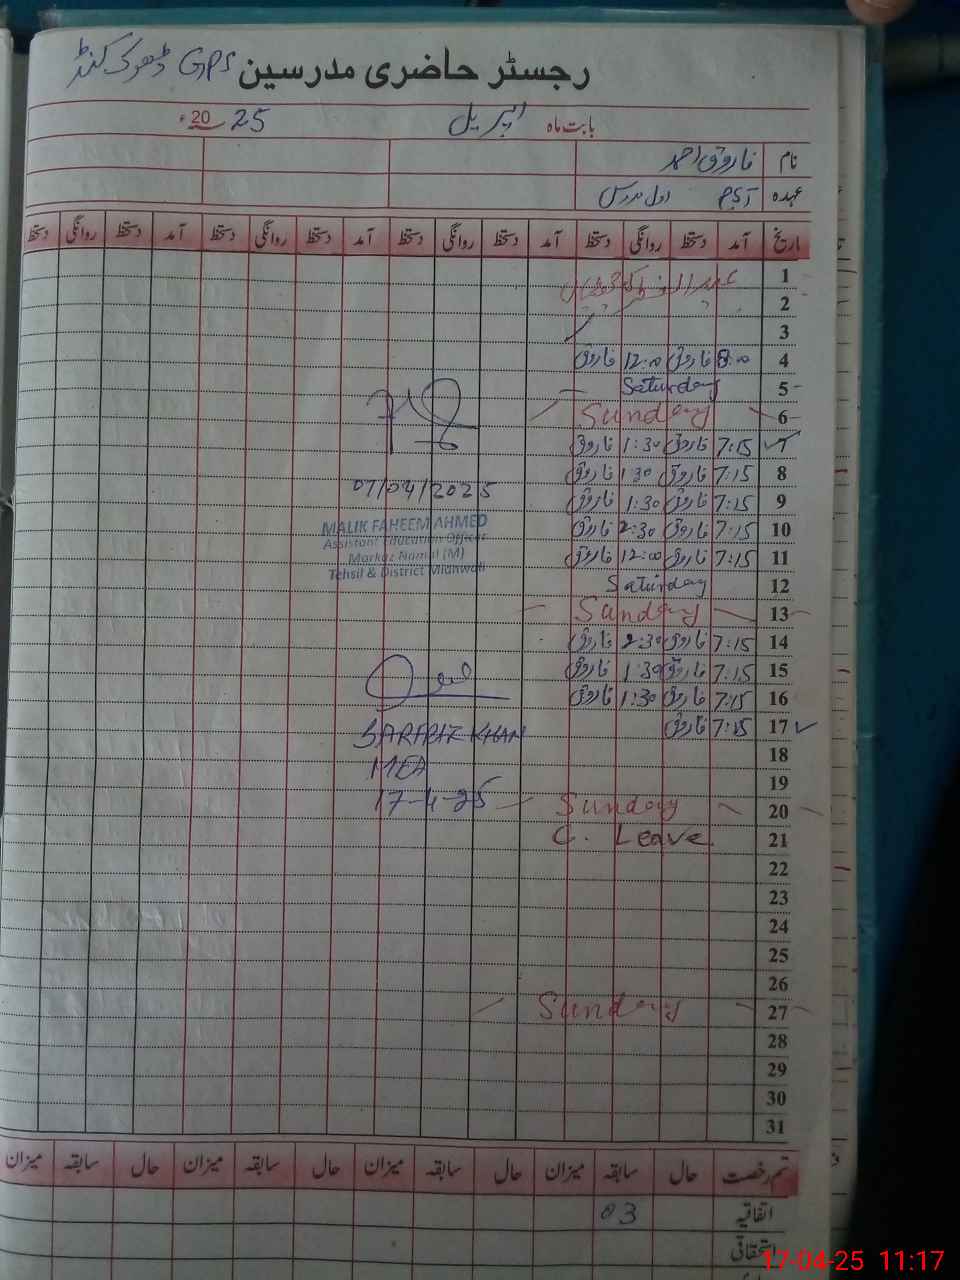 رجسٹر حاضری مدرسین GPS ڈھوک کنڈ
بابت ماہ اپریل 2025ء
نام فاروق احمد
عہدہ PST اول مدرس
تاریخ آمد دستخط روانگی دستخط آمد دستخط روانگی دستخط آمد دستخط روانگی دستخط آمد دستخط روانگی دستخط
1 عید الفطر کی
2
3
4 8:00 فاروق 12:00 فاروق
5 Saturday
6 Sunday
7 7:15 فاروق 1:30 فاروق
8 7:15 فاروق 1:30 فاروق
07/04/2025
9 7:15 فاروق 1:30 فاروق
MALIK FAHEEM AHMED
10 7:15 فاروق 2:30 فاروق
Assistant Education Officer
11 7:15 فاروق 12:00 فاروق
Markaz Namal (M)
Tehsil & District Mianwali
12 Saturday
13 Sunday
14 7:15 فاروق 2:30 فاروق
15 7:15 فاروق 1:30 فاروق
16 7:15 فاروق 1:30 فاروق
17 7:15 فاروق
SARFRAZ KHAN
18
MEA
19
17-4-25
20 Sunday
21 C. Leave
22
23
24
25
26
27 Sunday
28
29
30
31
قسم رخصت حال سابقہ میزان حال سابقہ میزان حال سابقہ میزان حال سابقہ میزان
اتفاقیہ 03
استحقاقی
17-04-25 11:17